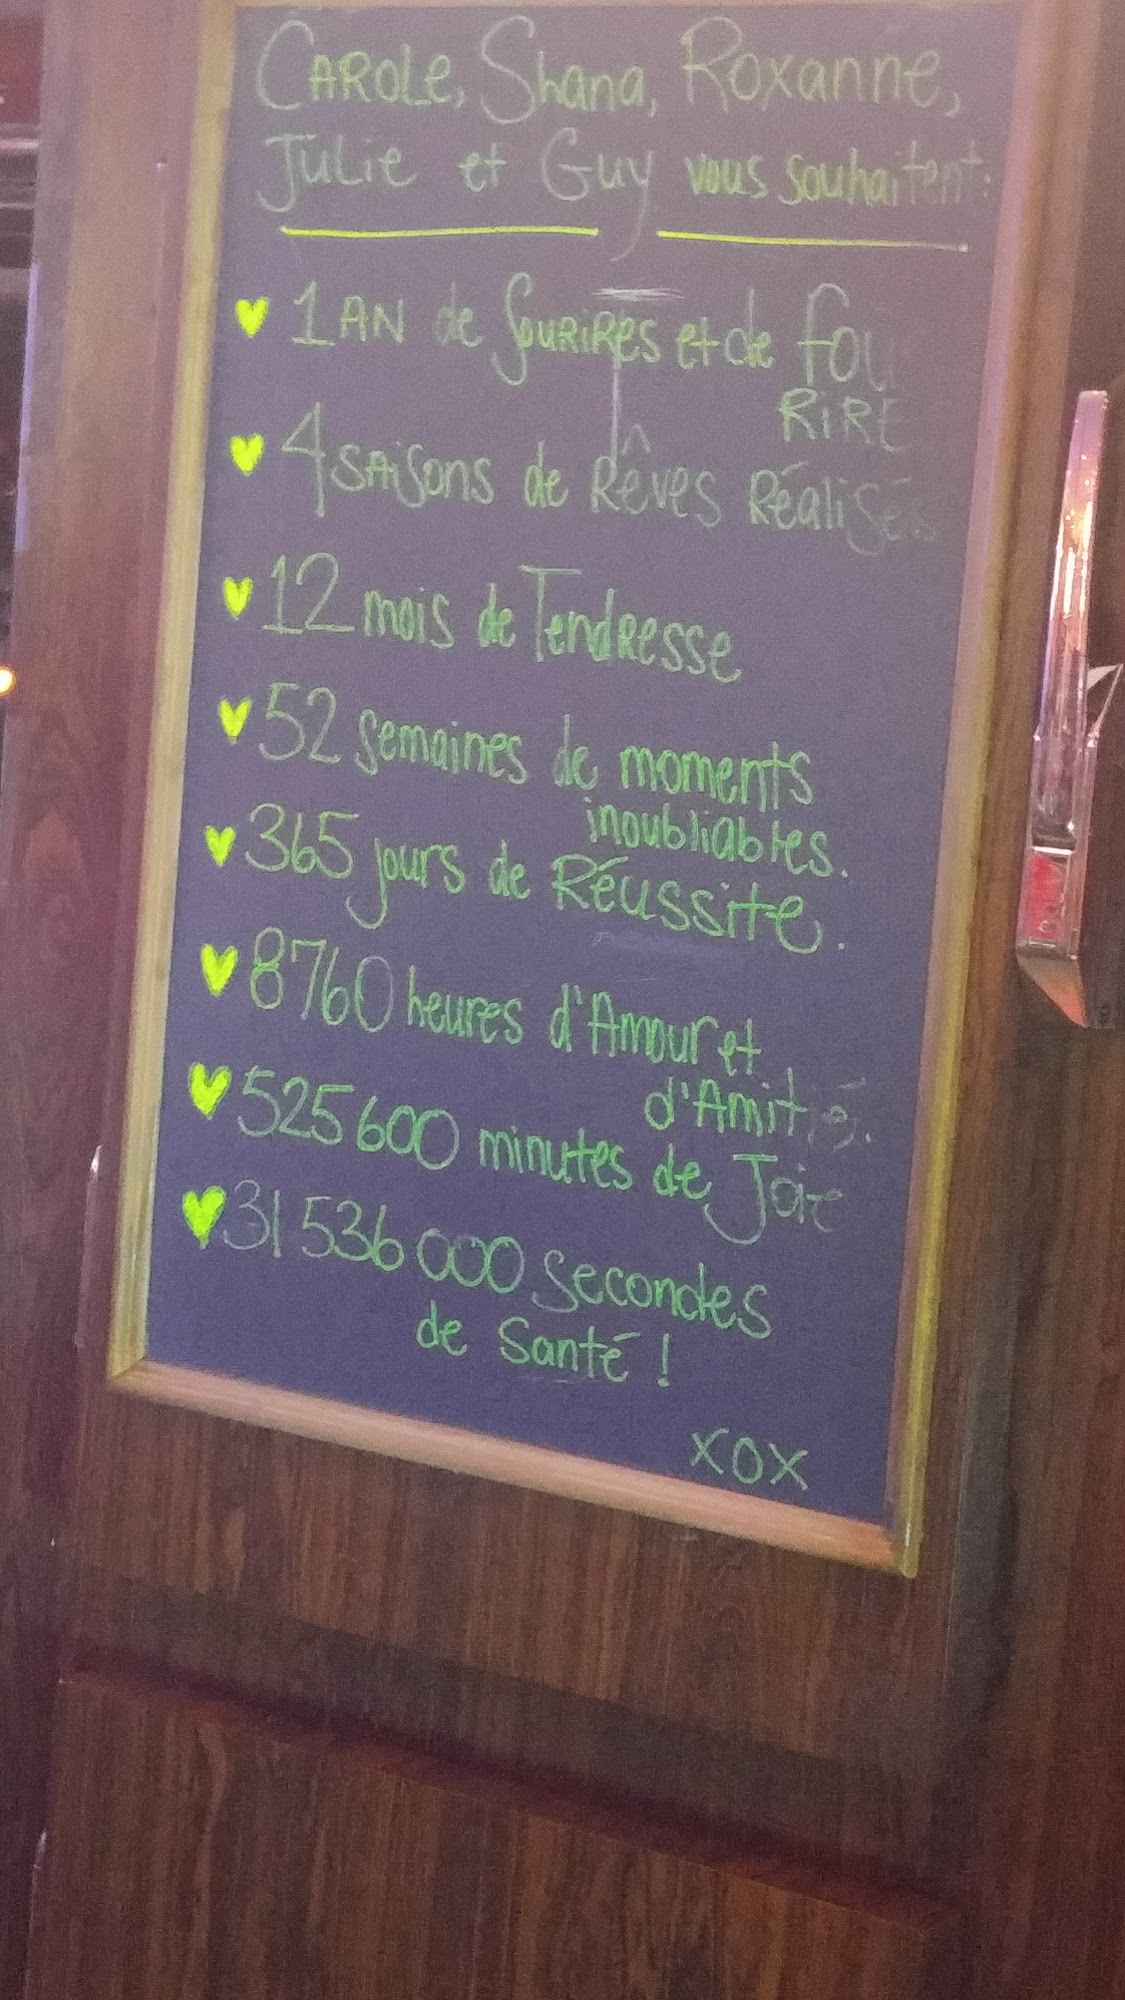 Carole, Shana, Roxanne,
Julie et Guy vous souhaitent:
1 AN de Sourires et de fou
RIRE
4 saisons de Rêves Réalisés
12 mois de Tendresse
52 semaines de moments
inoubliables.
365 jours de Réussite.
8760 heures d'Amour et
d'Amitié.
525 600 minutes de Joie
31 536 000 secondes
de Santé !
XOX